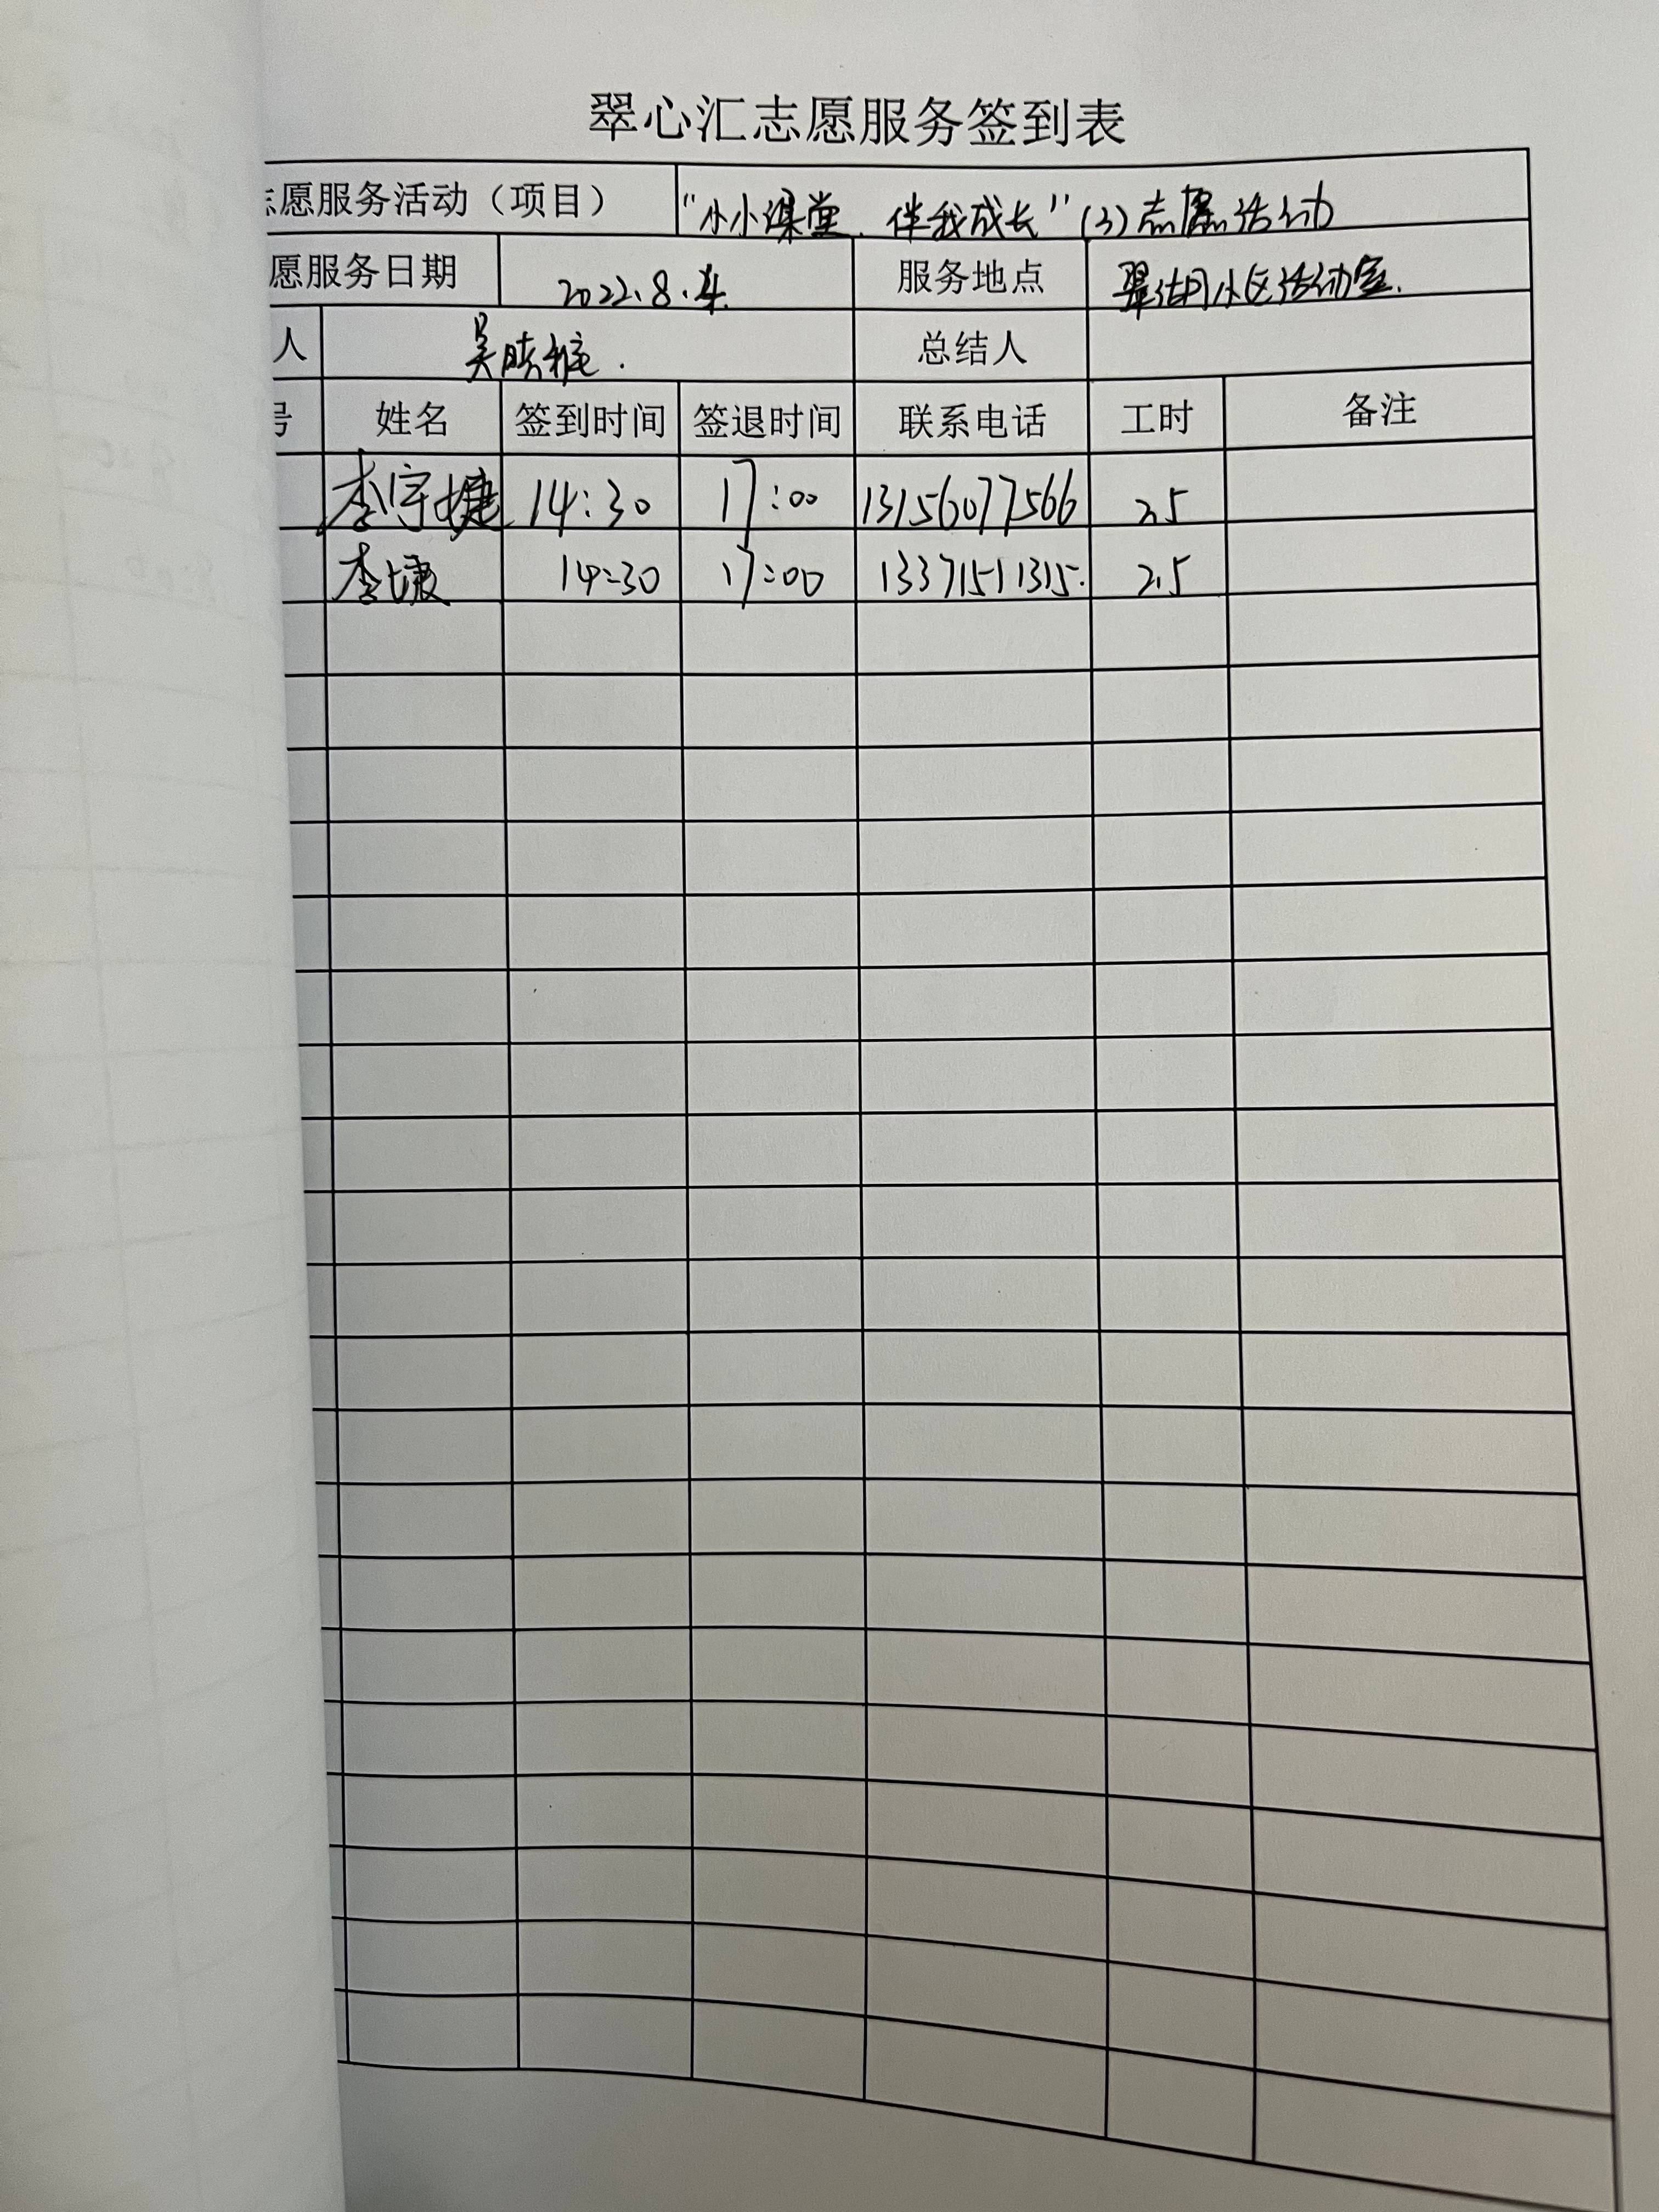 翠心汇志愿服务签到表
志愿服务活动（项目） “小小课堂、伴我成长”(3)志愿活动
愿服务日期 2022.8.4. 服务地点 翠湖小区活动室.
人 吴 总结人
号 姓名 签到时间 签退时间 联系电话 工时 备注
李宇捷 14:30 17:00 13156077566 2.5
李 14:30 17:00 13371511315. 2.5